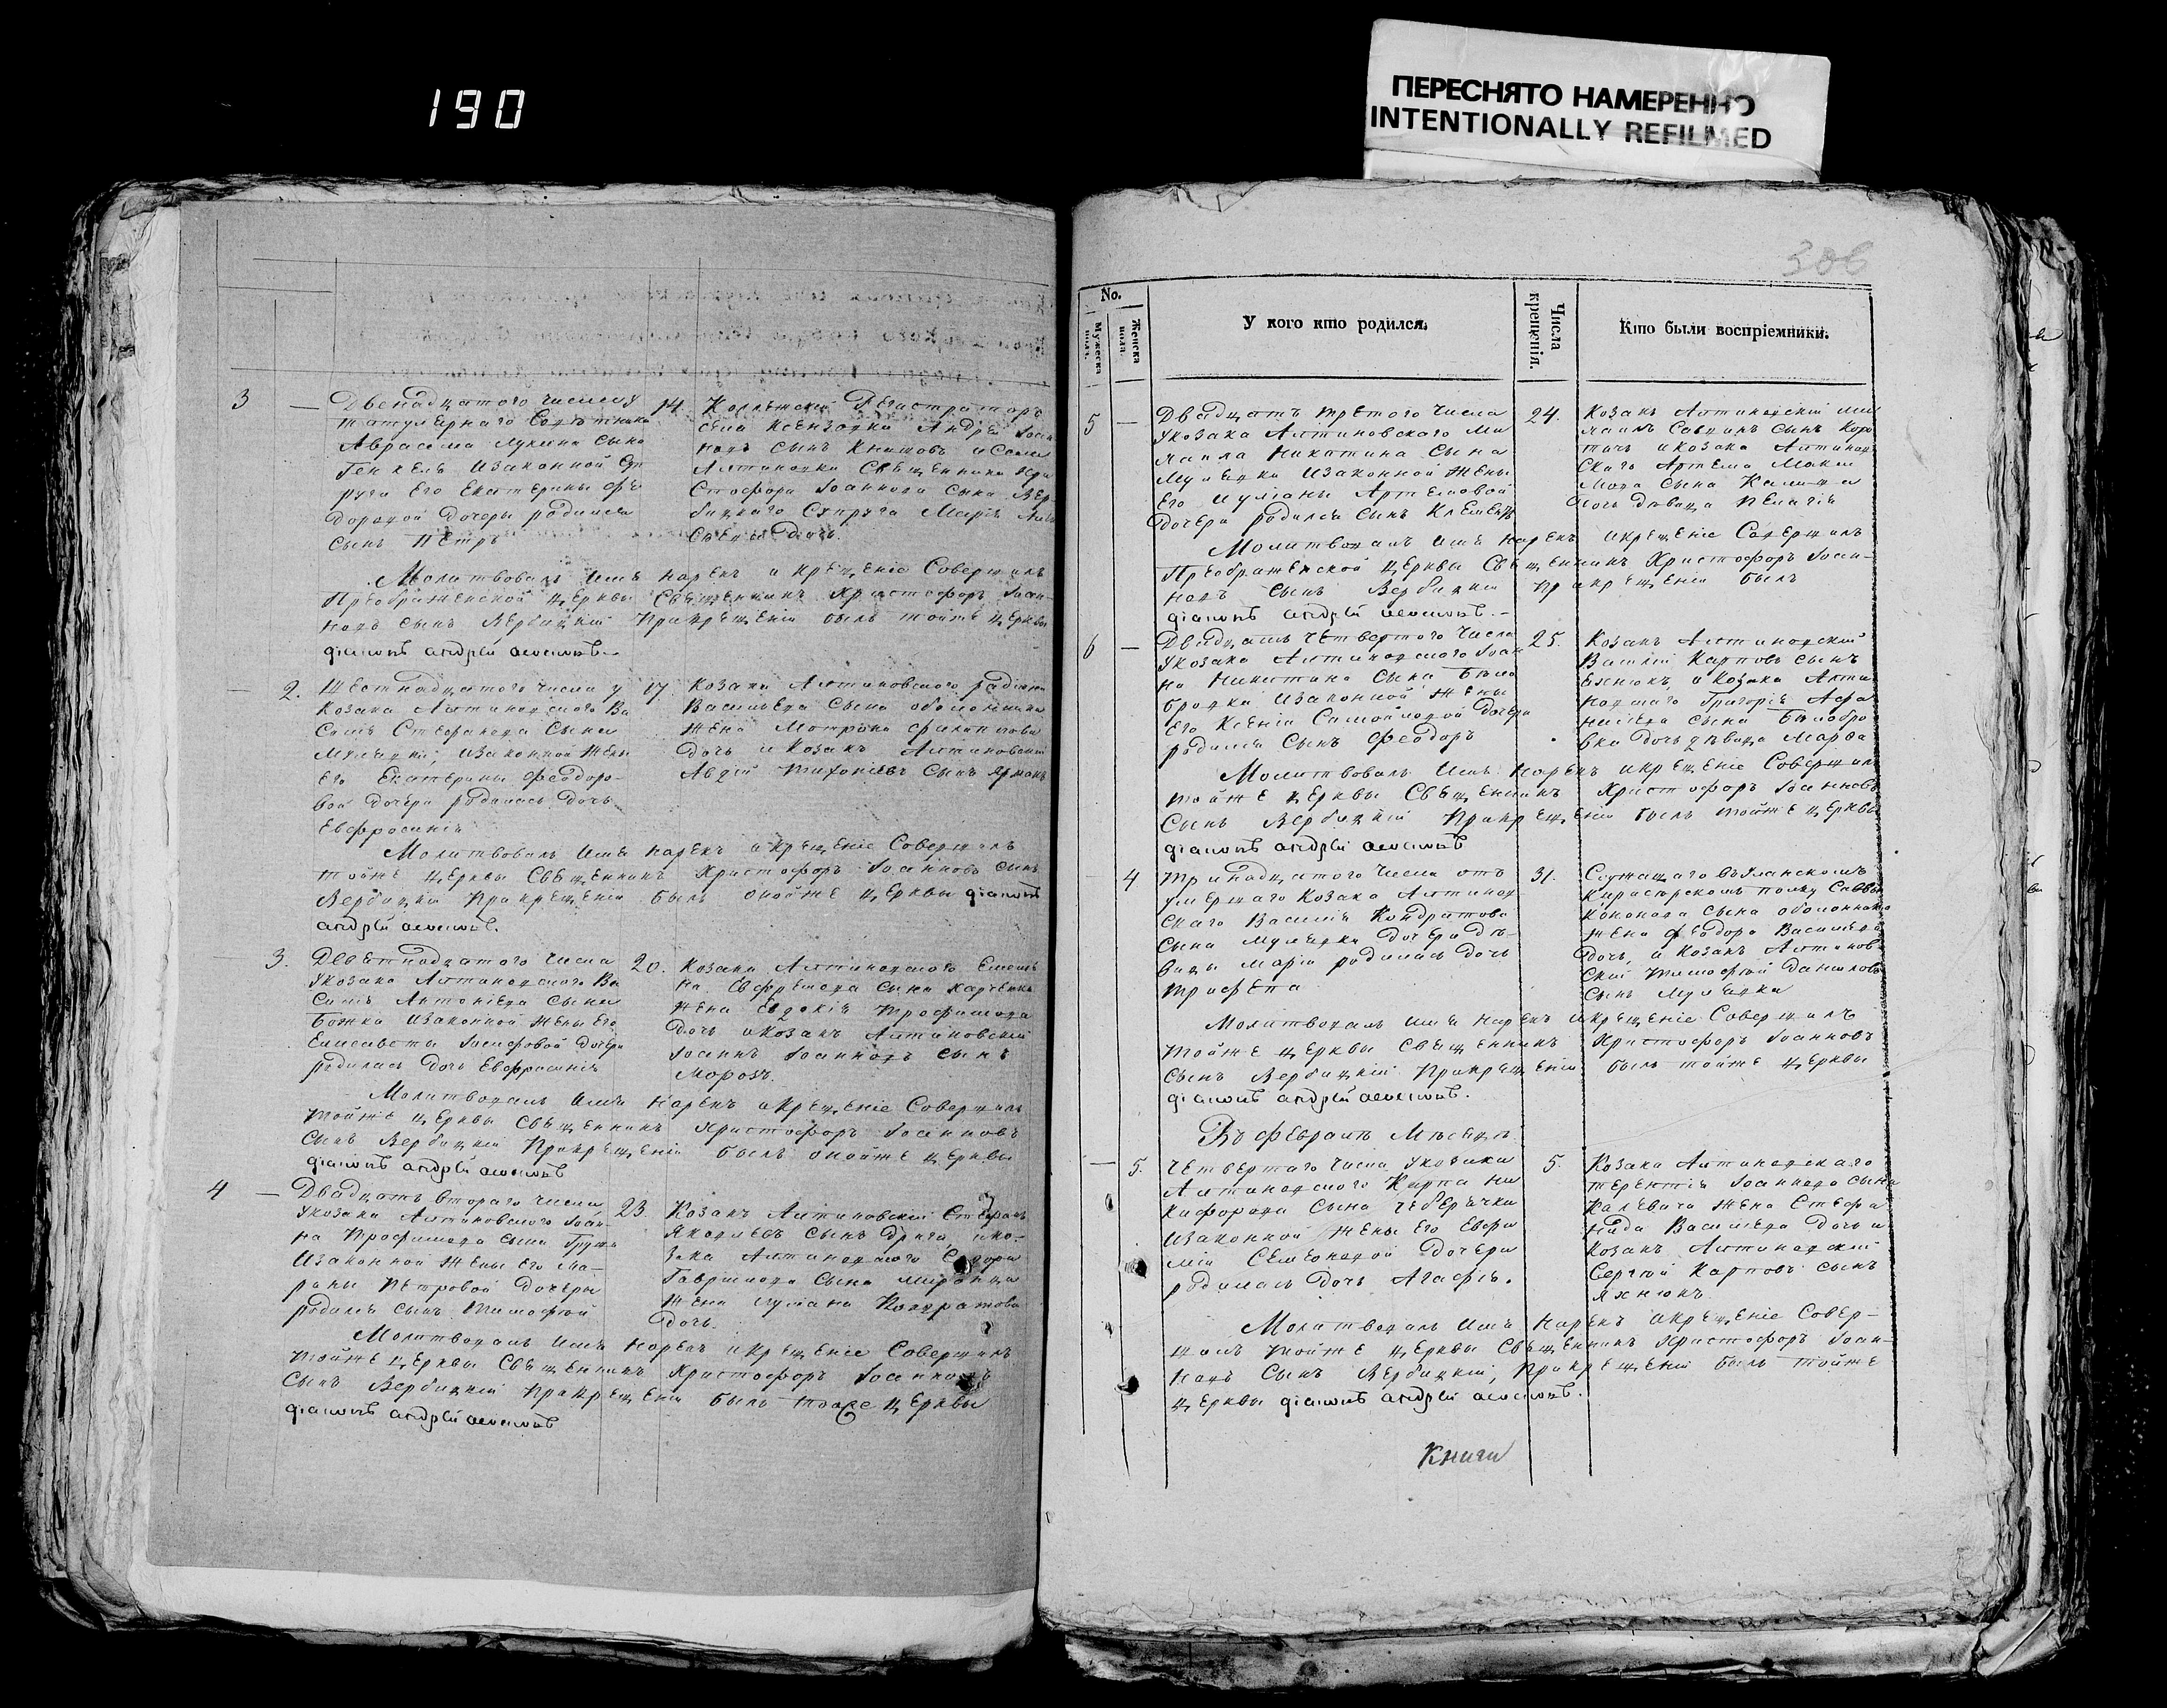 190
ПЕРЕСНЯТО НАМЕРЕННО
INTENTIONALLY REFILMED
3
—
Двенадцатого числа у
Титулярного
Авраама Лукина сына
изаконной
руги Его Екатерины Фео
доровой Дочери родился
сынъ Петръ
14
Коллежскій Регистраторъ
села Андрей Іоан
новъ сынъ и села
Алтиновки Священника Хри
стофора Іоаннова сына Вер
бицкаго Супруга Марія
Дочь.
Молитвовалъ имя нарекъ и крещеніе Совершилъ
Преображенской церквы Священникъ Христофоръ Іоан-
новъ сынъ Вербицкій Прикрещеніи былъ тойже церквы
діаконъ андрей
—
2.
Шестнадцатого числа у
Козака Алтиновского Ва
силія Стефанова Сына
изаконной жены
Его Екатерины Феодоро-
вой дочери родилась дочь
Евфросинія
17.
Козака Алтиновского
Васильева Сына оболонника
жена Мотрона Филиппова
дочь и Козакъ Алтиновскій
Авдій сынъ
Молитвовалъ имя нарекъ и крещеніе Совершилъ
тойже церквы Священникъ Христофоръ Іоанновъ сынъ
Вербицкій Прикрещеніи былъ онойже церквы діаконъ
андрей
3.
Девятнадцатого числа
Укозака Алтиновского Ва
силія Антоніева Сына
Божка изаконной жены Его
Елисаветы Іосифовой дочери
родилась дочь Евфросинія
20.
Козака Алтиновского
на Евфремова сына Харченка
жена Евдокія Трофимова
дочь и козакъ Алтиновскій
Іоаннъ Іоанновъ сынъ
Морозъ.
Молитвовалъ имя нарекъ и крещеніе Совершилъ
тойже церквы Священникъ Христофоръ Іоанновъ
сынъ Вербицкій Прикрещеніи былъ онойже церквы
діаконъ андрей
4
—
Двадцать втораго числа
Укозака Алтиновского Іоан-
на Трофимова сына
изаконной жены Его Ма-
рины Петровой дочери
родился сынъ Тимофей
23.
Козакъ Алтиновскій Стефанъ
Яковлевъ сынъ Дрига, ико-
зака Алтиновского
Гаврилова сына
жена Кондратова
дочь.
Молитвовалъ имя нарекъ и крещеніе Совершилъ
тойже церквы Священникъ Христофоръ Іоанновъ
Сынъ Вербицкій Прикрещеніи былъ тоаже церквы
діаконъ андрей
306
No.
Мужеска
пола.
Женска
пола.
У кого кто родился.
Числа
крещенія.
Кто были воспріемники.
5
—
Двадцать третого числа
Укозака Алтиновского Ми
хаила Никитина Сына
изаконной жены
Его Иуліаны Артемовой
дочери родился сынъ Климентъ
24.
Козакъ Алтиновскій Ми
хаилъ Саввинъ сынъ Коро
и козака Алтинов
скаго Артема Макси
мова сына
дочь девица Пелагія
Молитвовалъ имя нарекъ и крещеніе Совершилъ
Преображенской церквы Священникъ Христофоръ Іоан-
новъ сынъ Вербицкій прикрещеніи былъ
діаконъ андрей
6
—
Двадцать четвертого числа
Укозака Алтиновского Іоан
на Никитина сына Било
бровки изаконной жены
Его Ксеніи Самойловой дочери
родился сынъ Феодоръ
25.
Козакъ Алтиновскій
Василій Карповъ сынъ
Яхнюкъ, и козака Алти
новскаго Григорія Афа
насіева сына Билобро
вки дочь девица Марфа
Молитвовалъ имя нарекъ и крещеніе Совершилъ
тойже церквы Священникъ Христофоръ Іоанновъ
сынъ Вербицкій Прикрещеніи былъ тойже церквы
діаконъ андрей
4
Тринадцатого числа отъ
умершаго Козака Алтинов
скаго Василія Кондратова
сына дочери де-
вицы Маріи родилась дочь
Трифена
31.
Служащаго въ Уланскомъ
Кирасирскомъ полку Саввы
Кононова сына оболонника
жена Феодора Васильева
дочь, и козакъ Алтинов
скій Тимофей Даниловъ
сынъ
Молитвовалъ имя нарекъ и крещеніе Совершилъ
тойже церквы Священникъ Христофоръ Іоанновъ
сынъ Вербицкій Прикрещеніи былъ тойже церквы
діаконъ андрей
Въ феврале Месяце
—
5.
Четвертаго числа укозака
Алтиновского Карпа Ни
кифорова сына
изаконной жены Его Евфи
міи Семеновой дочери
родилась дочь Агафія.
5.
Козака Алтиновскаго
терентія Іоаннова сына
жена Стефа
нида Васильева дочь и
козакъ Алтиновскій
Сергій Карповъ сынъ
Яхнюкъ.
Молитвовалъ имя нарекъ и крещеніе Совер-
шилъ тойже церквы Священникъ Христофоръ Іоан-
новъ сынъ Вербицкій, прикрещеніи былъ тойже
церквы діаконъ андрей
Книги